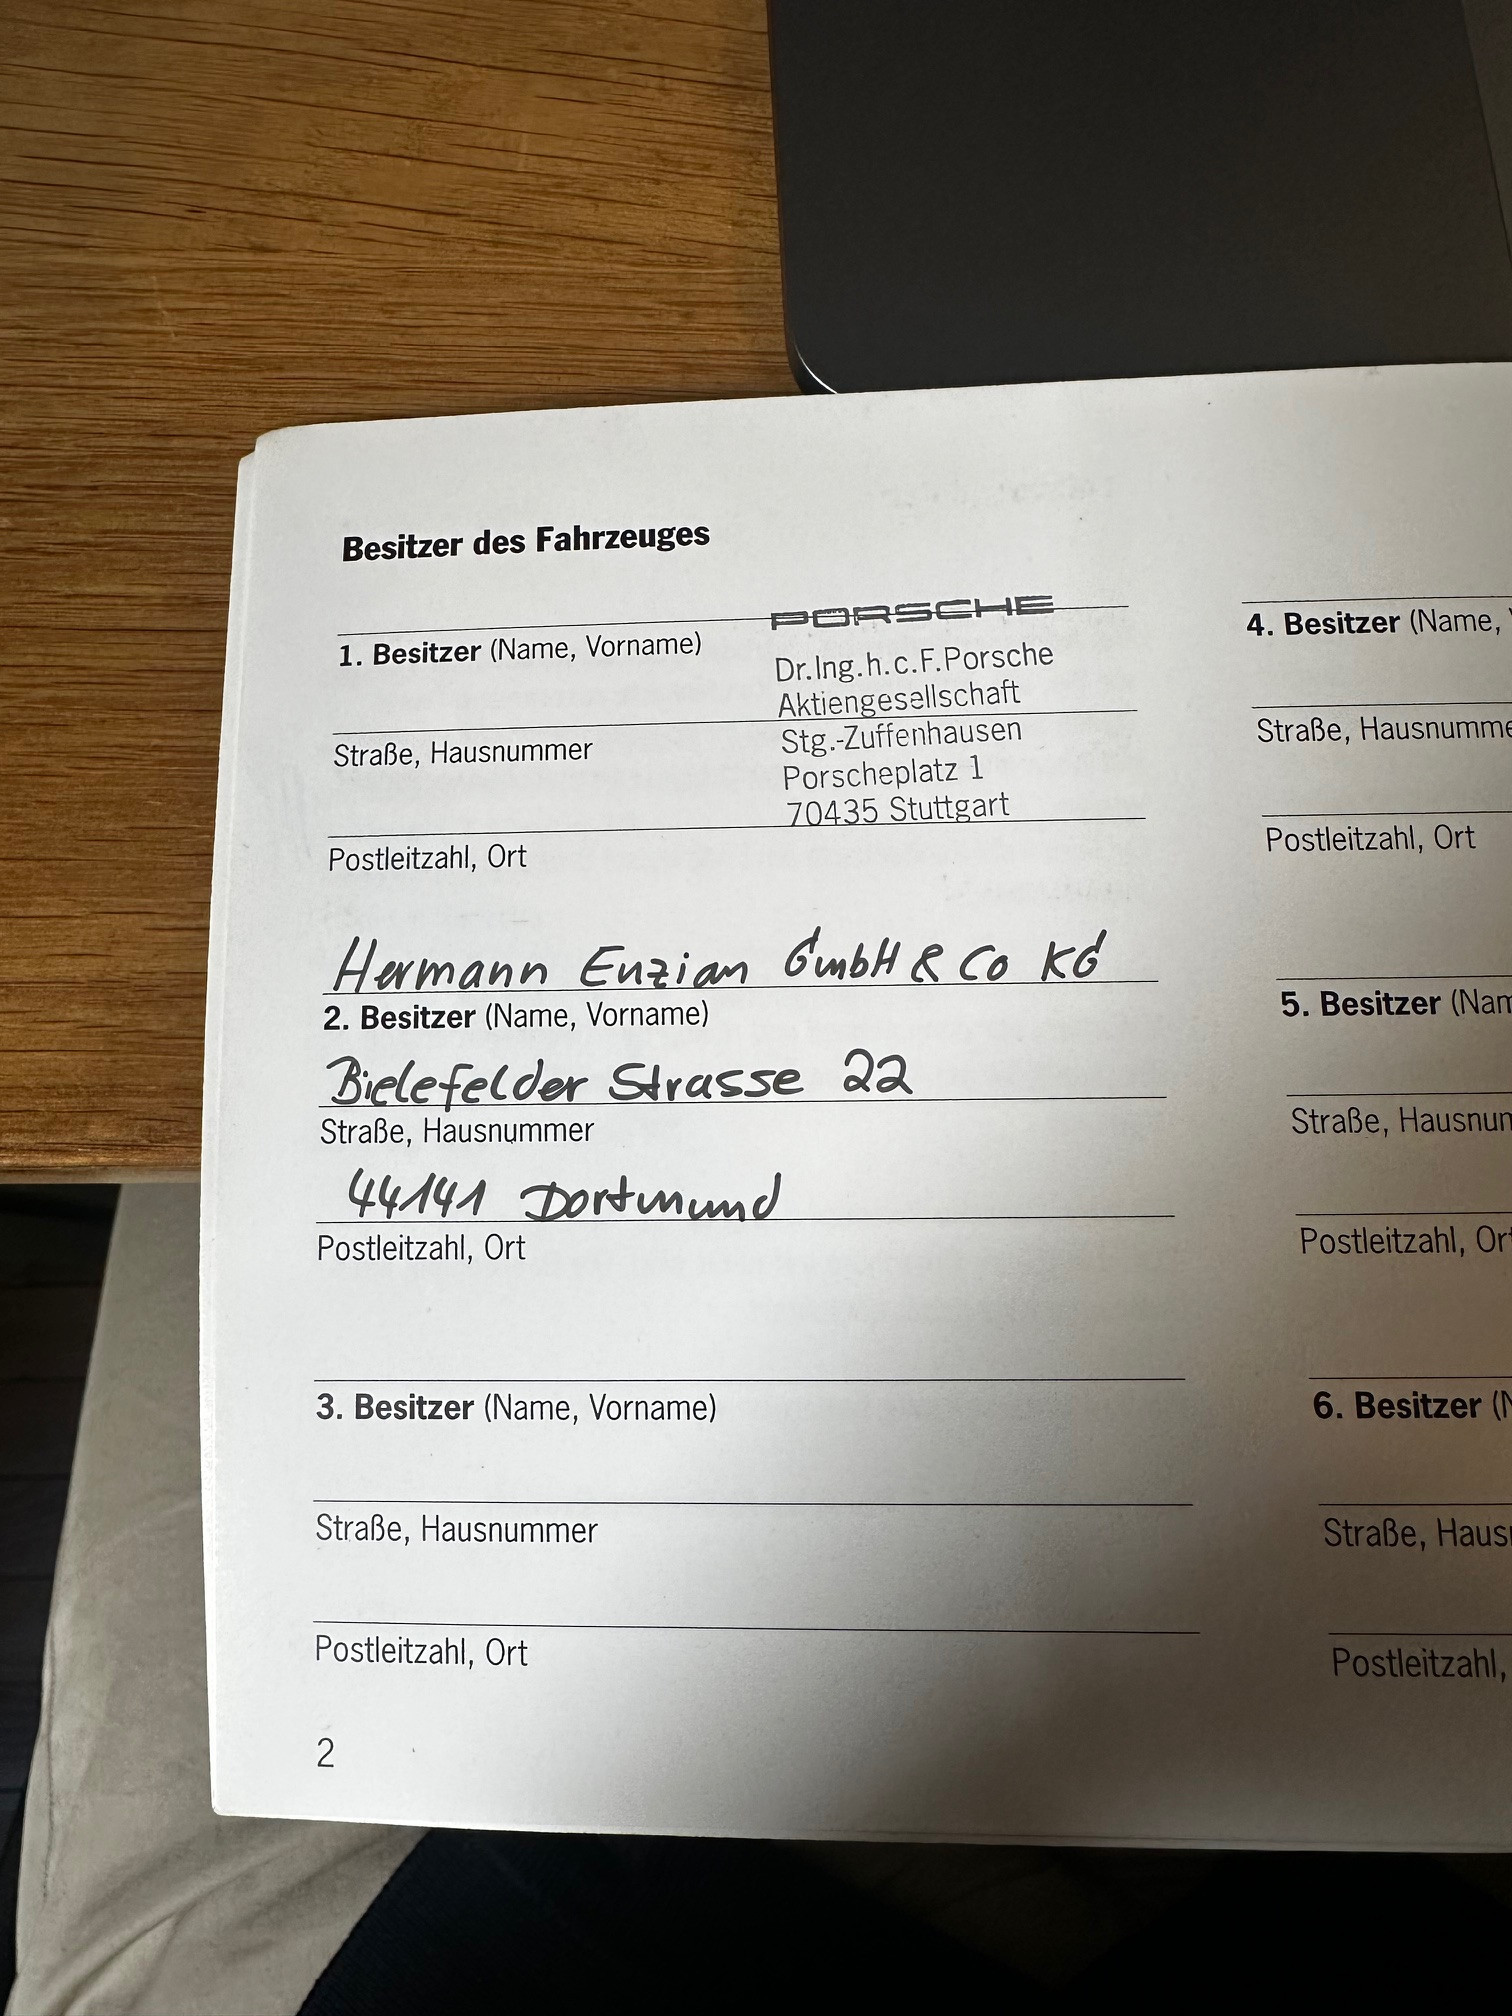 Besitzer des Fahrzeuges
PORSCHE
1. Besitzer (Name, Vorname)
Dr.Ing.h.c.F.Porsche
Aktiengesellschaft
Straße, Hausnummer
Stg.-Zuffenhausen
Porscheplatz 1
70435 Stuttgart
Postleitzahl, Ort
Hermann Enzian GmbH & Co KG
2. Besitzer (Name, Vorname)
Bielefelder Strasse 22
Straße, Hausnummer
44141 Dortmund
Postleitzahl, Ort
3. Besitzer (Name, Vorname)
Straße, Hausnummer
Postleitzahl, Ort
2
4. Besitzer (Name,
Straße, Hausnumme
Postleitzahl, Ort
5. Besitzer (Nam
Straße, Hausnum
Postleitzahl, Ort
6. Besitzer (N
Straße, Hausn
Postleitzahl,